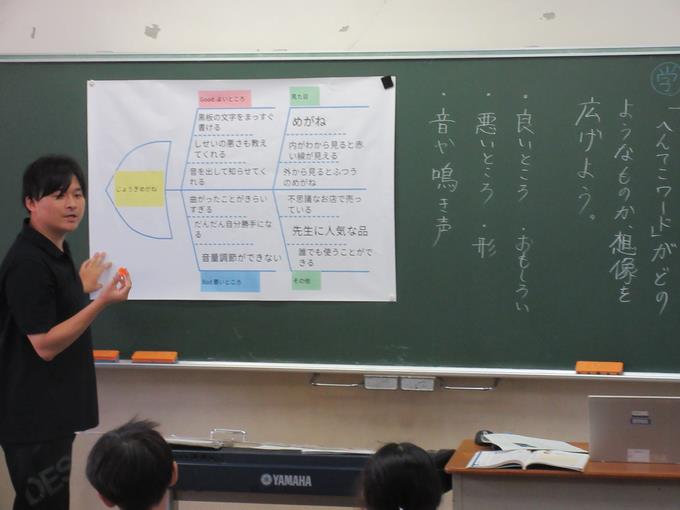 学
「へんてこワード」がどの
ようなものか、想像を
広げよう。
・良いところ ・おもしろい
・悪いところ ・形
・音や鳴き声
Good よいところ
黒板の文字をまっすぐ
書ける
しせいの悪さも教え
てくれる
音を出して知らせてく
れる
見た目
めがね
内がわから見ると赤
い線が見える
外から見るとふつう
のめがね
じょうぎめがね
曲がったことがきらい
すぎる
だんだん自分勝手にな
る
音量調節ができない
Bad 悪いところ
不思議なお店で売っ
ている
先生に人気な品
誰でも使うことがで
きる
その他
YAMAHA